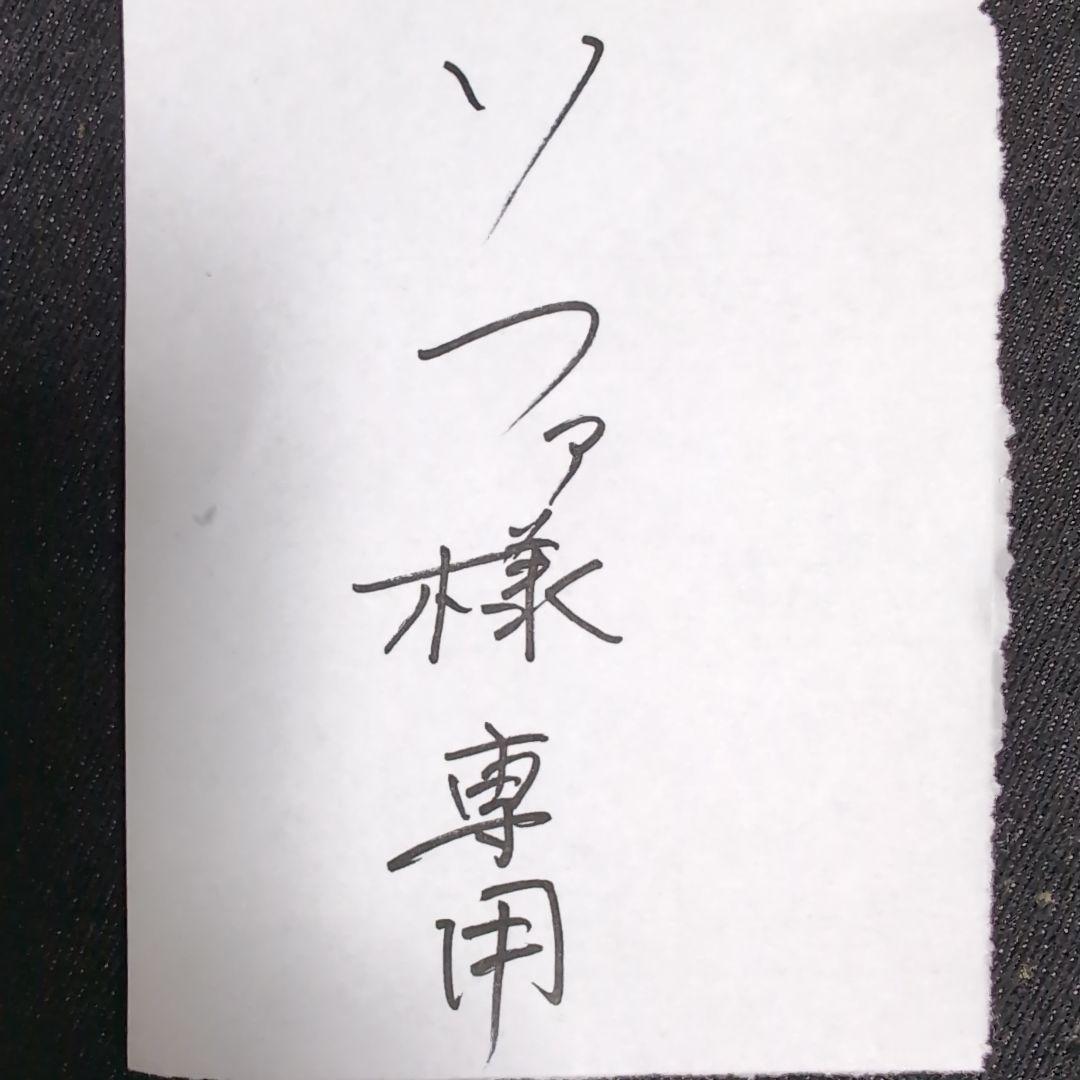 ソファ様専用